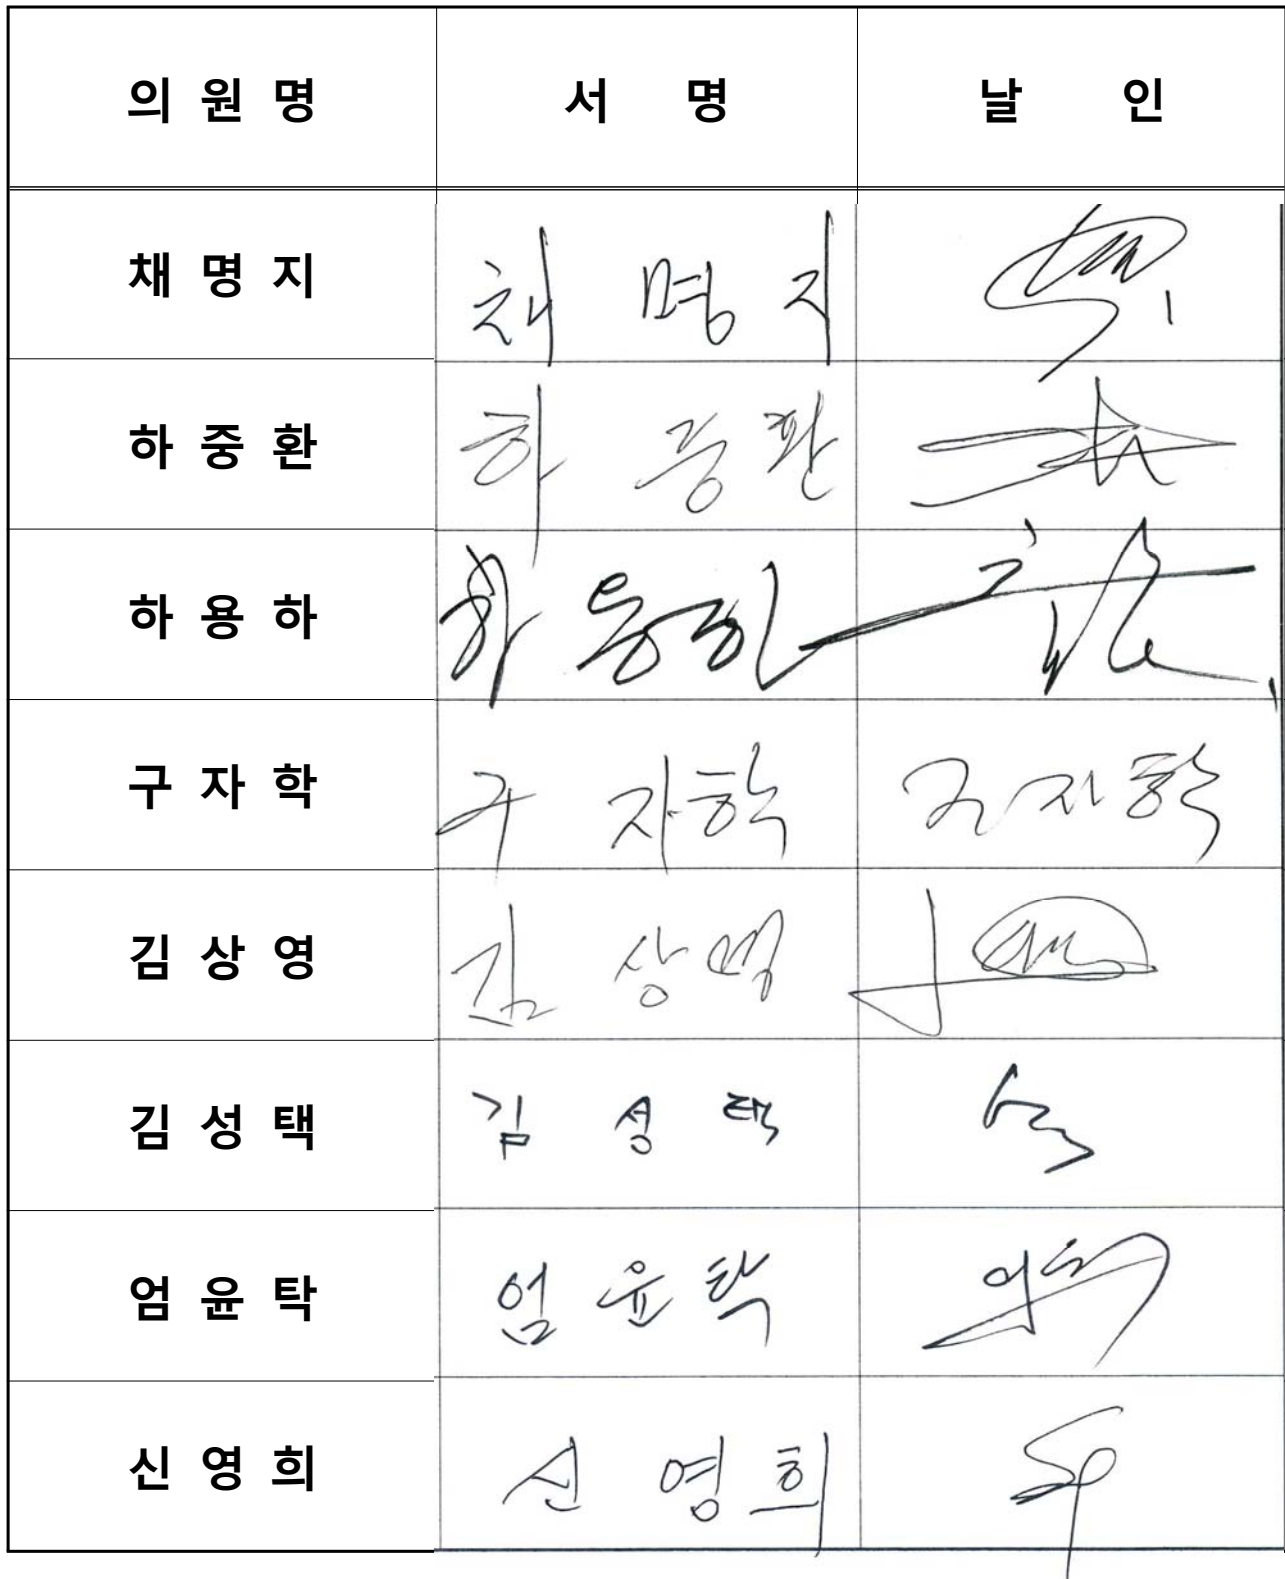 의 원 명 서 명 날 인
채 명 지 채 명 지
하 중 환 하 중 환
하 용 하 하 용 하
구 자 학 구 자 학 구 자 학
김 상 영 김 상 영
김 성 택 김 성 택
엄 윤 탁 엄 윤 탁
신 영 희 신 영 희